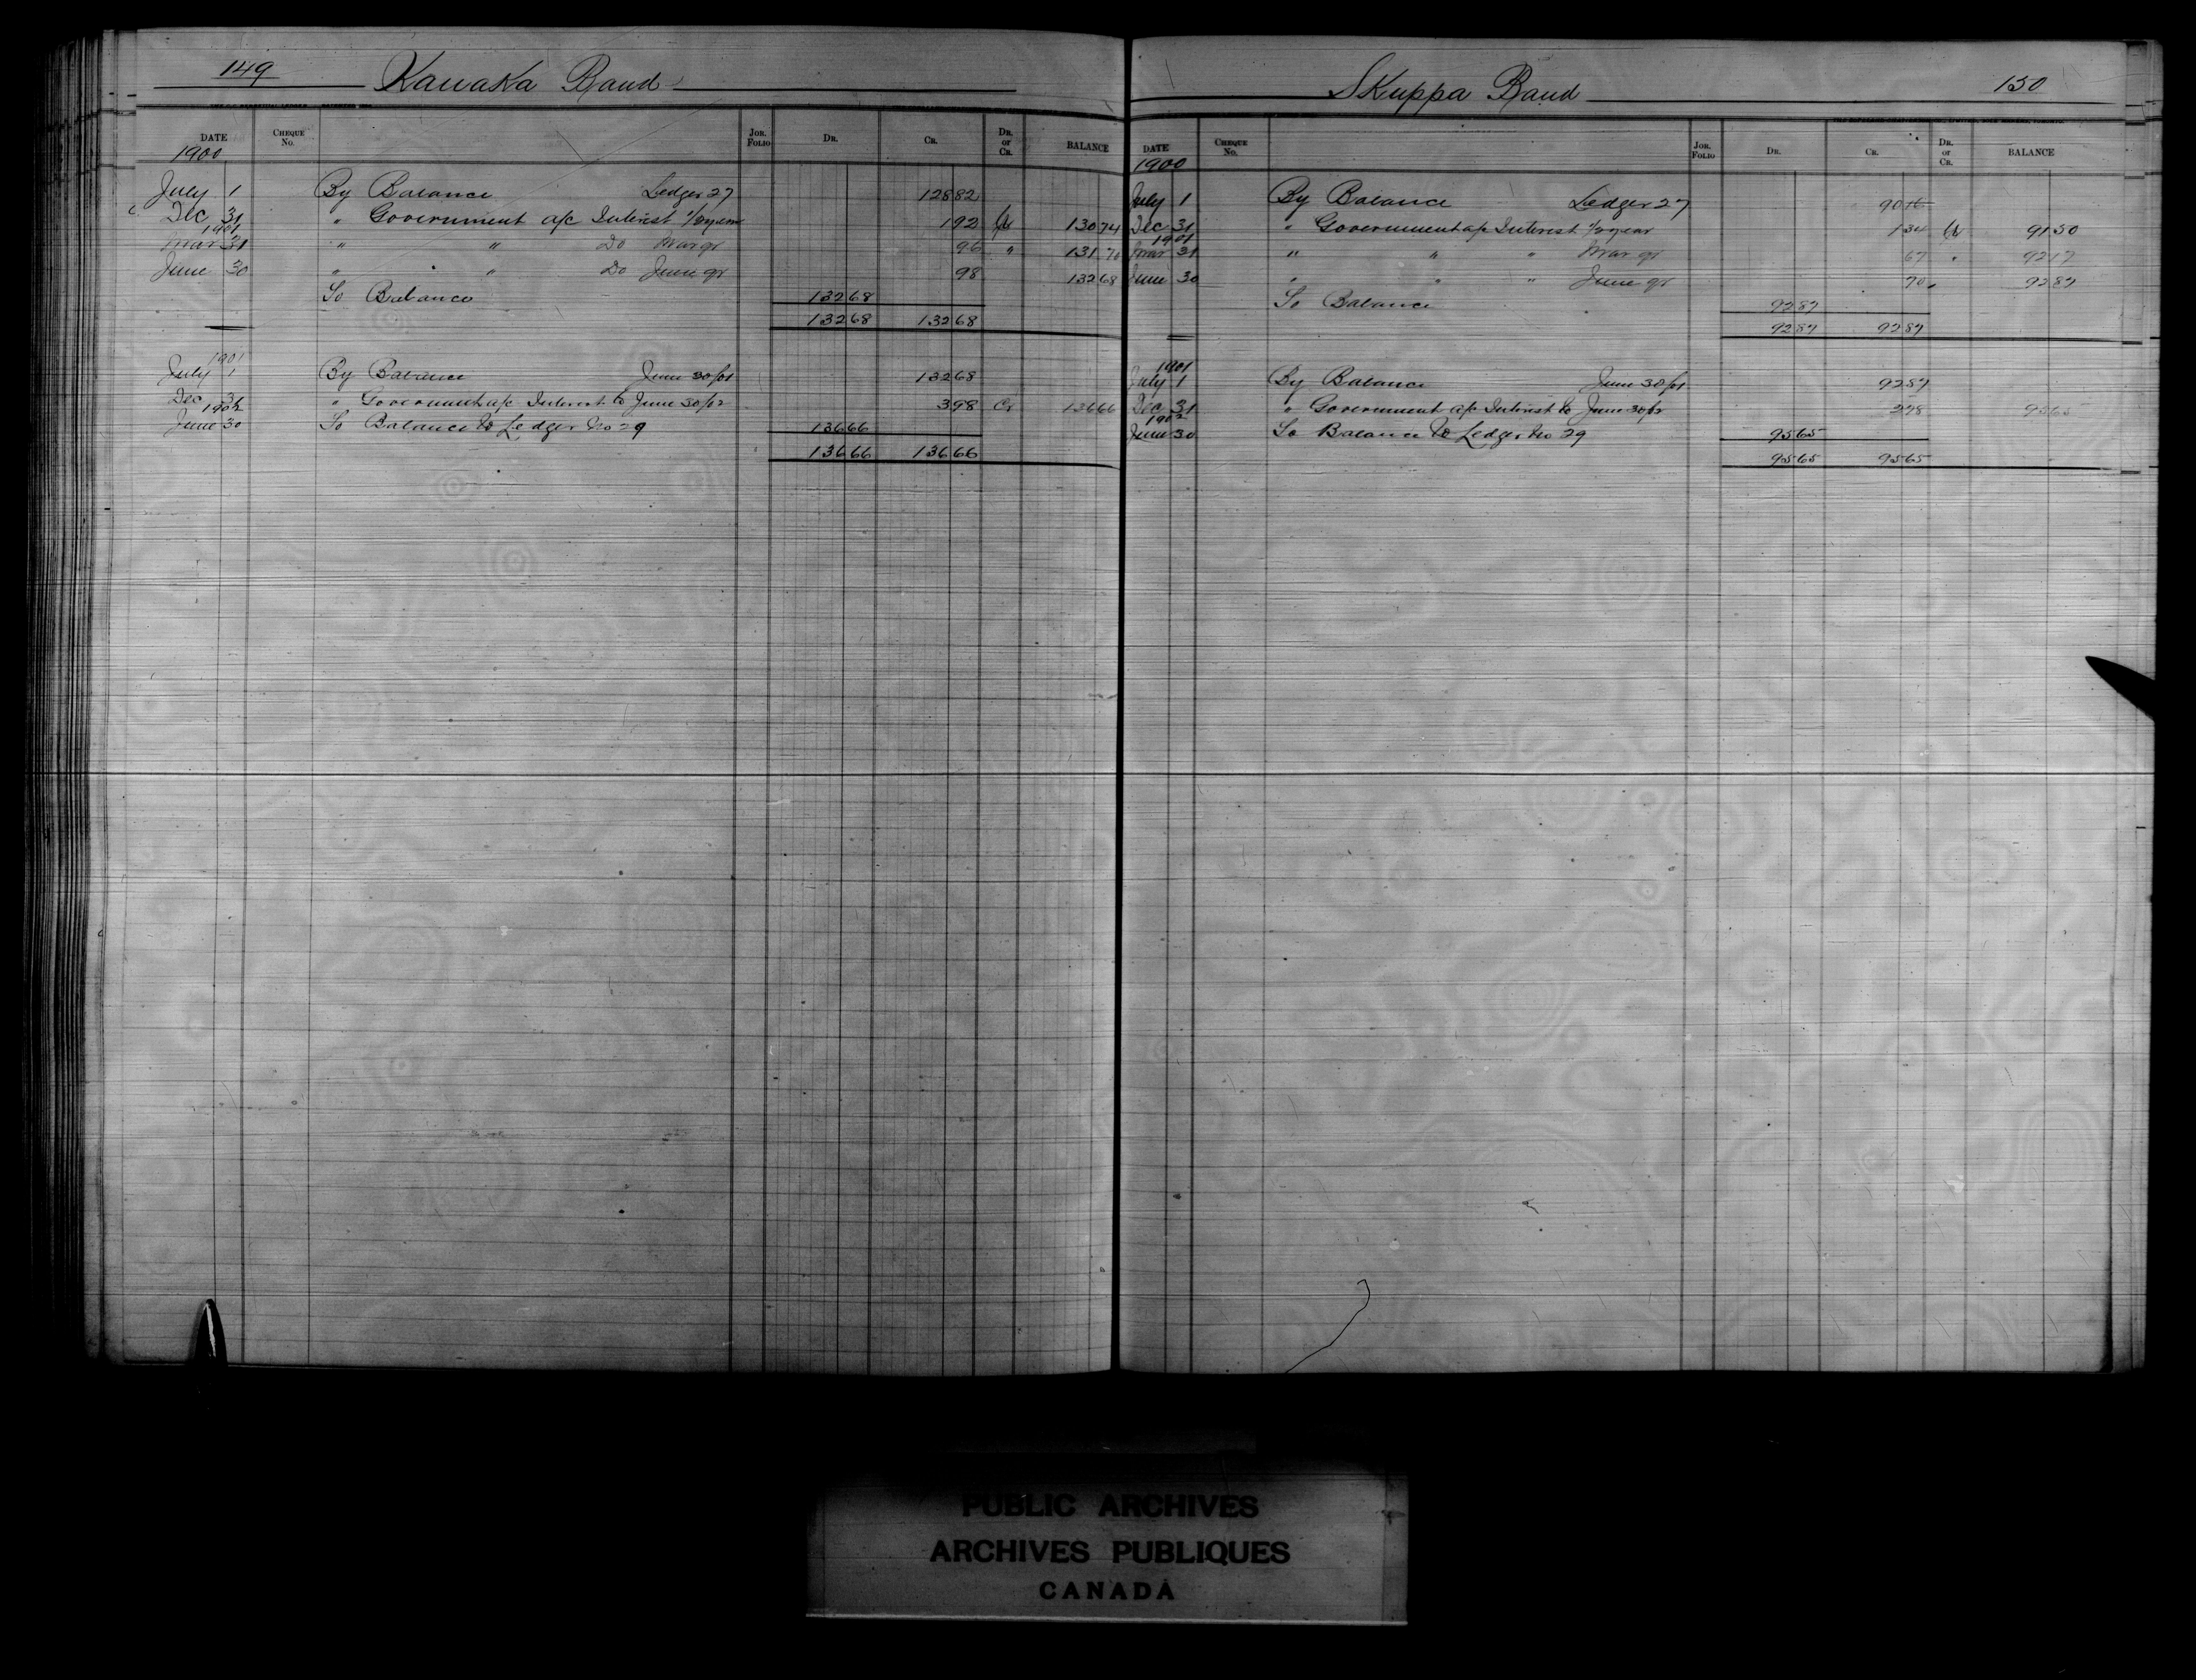 149 Kanaka Band
DATE CHEQUE No. JOR. FOLIO DR. CR. DR. or CR. BALANCE
1900
July 1 By Balance Ledger 27 128 82
Dec 31 " Government a/c Interest 1/2 year 1 92 Cr 130 74
1901
Mar 31 " " Do Mar qr 96 " 131 70
June 30 " " Do June qr 98 132 68
To Balance 132 68
132 68 132 68
1901
July 1 By Balance June 30/01 132 68
Dec 31 " Government a/c Interest to June 30/02 3 98 Cr 136 66
1902
June 30 To Balance to Ledger No 29 136 66
136 66 136 66
Skuppa Band 150
DATE CHEQUE No. JOR. FOLIO DR. CR. DR. or CR. BALANCE
1900
July 1 By Balance Ledger 27 90 16
Dec 31 " Government a/c Interest 1/2 year 1 34 Cr 91 50
1901
Mar 31 " " " Mar qr 67 " 92 17
June 30 " " " June qr 70 92 87
To Balance 92 87
92 87 92 87
1901
July 1 By Balance June 30/01 92 87
Dec 31 " Government a/c Interest to June 30/02 2 78 95 65
1902
June 30 To Balance to Ledger No 29 95 65
95 65 95 65
PUBLIC ARCHIVES
ARCHIVES PUBLIQUES
CANADA